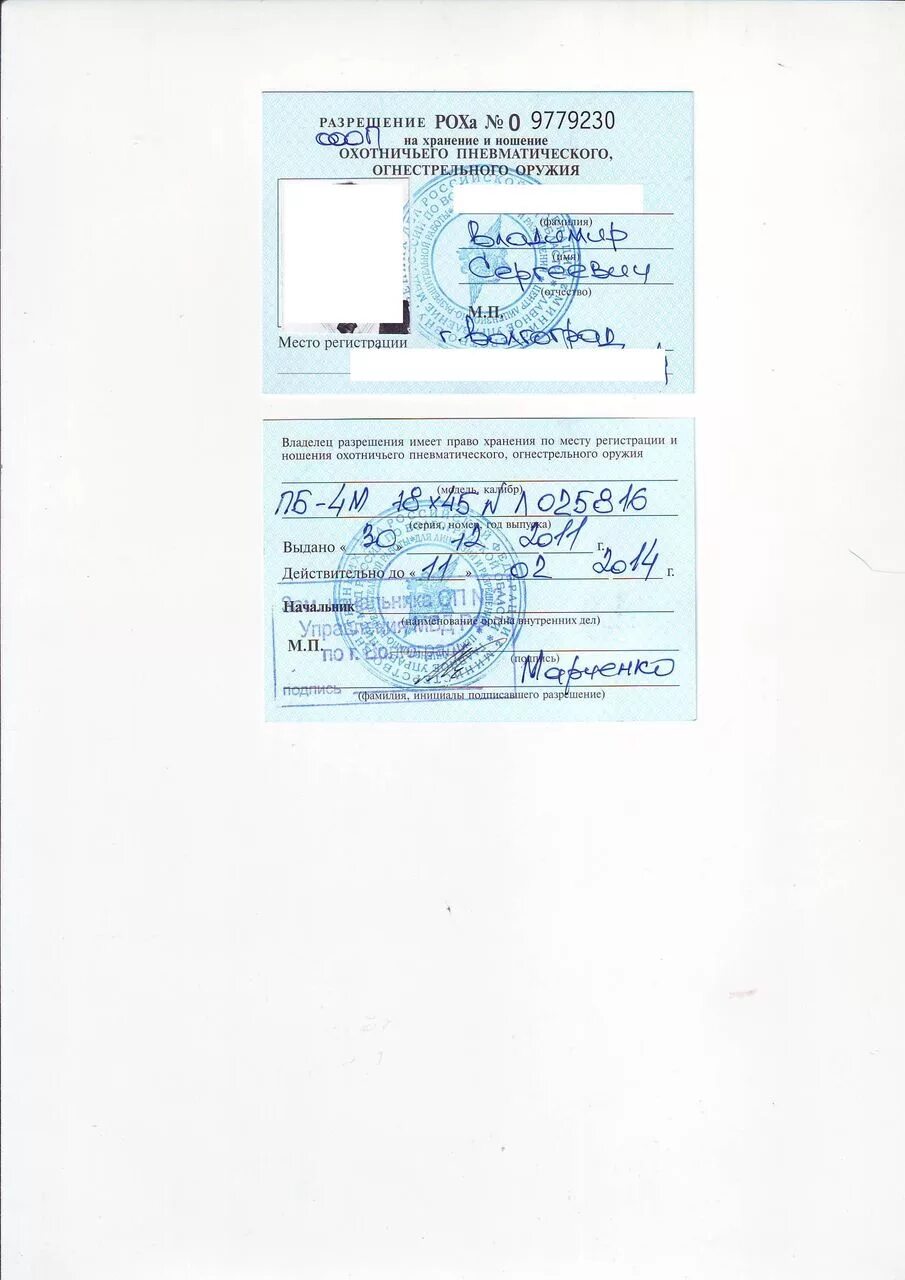 РАЗРЕШЕНИЕ РОХа № 0 9779230
ОООП
на хранение и ношение
ОХОТНИЧЬЕГО ПНЕВМАТИЧЕСКОГО,
ОГНЕСТРЕЛЬНОГО ОРУЖИЯ
(фамилия)
Владимир
(имя)
Сергеевич
(отчество)
М.П.
г. Волгоград
Место регистрации
Владелец разрешения имеет право хранения по месту регистрации и
ношения охотничьего пневматического, огнестрельного оружия
(модель, калибр)
ПБ-4М 18х45 № Л 025816
(серия, номер, год выпуска)
Выдано « 30 » 12 2011 г.
Действительно до « 11 » 02 2014 г.
Зам. начальника ОП №
Начальник
(наименование органа внутренних дел)
Управления МВД
М.П.
по г. Волгограду
(подпись)
Марченко
подпись
(фамилия, инициалы подписавшего разрешение)